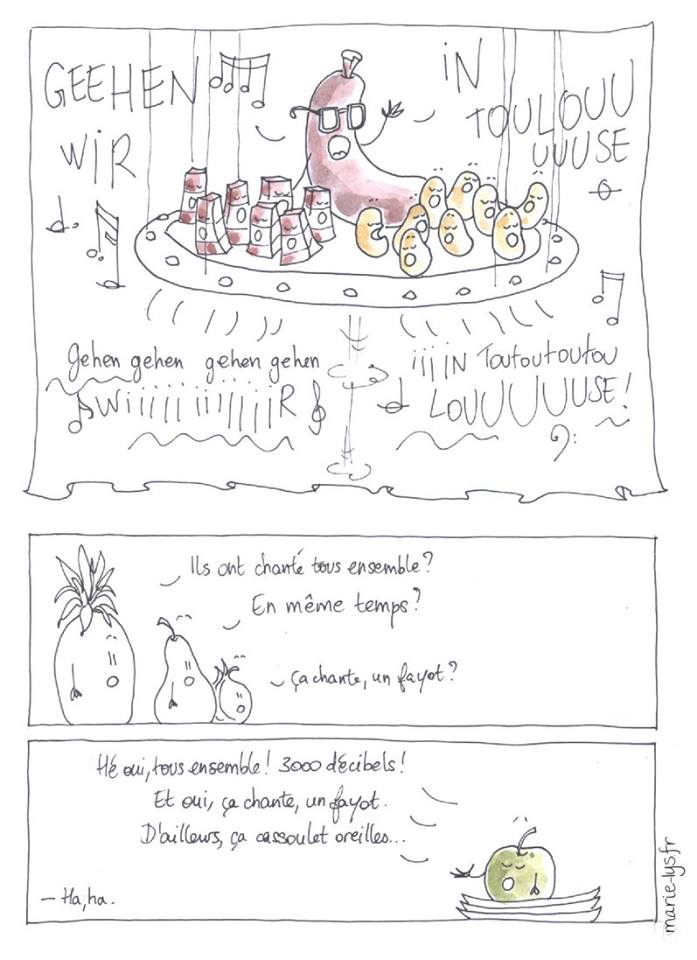 GEEHEN
WIR
IN
TOULOUU
UUUSE
Gehen gehen gehen gehen
WiiiiiiiiiiiiiR
iiiiN Toutoutoutou
LOUUUUUUSE!
Ils ont chanté tous ensemble?
En même temps?
Ça chante, un fayot?
Hé oui, tous ensemble! 3000 décibels!
Et oui, ça chante, un fayot.
D'ailleurs, ça cassoulet oreilles...
– Ha, ha.
marie-lys.fr